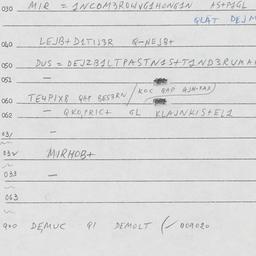 030 MIR = 1NCOM3ROWYG1HONG1N AS+P1GL
QLAT DEJM
040 LEJB+ D1T1J3R Q-NEJB+
050 DUS = DEJZB1LTPASTN1S+T1ND3RUKA
051 —
060 TE4P1X8 QAP BES3RN / KOC QAP AJH-FAX/
062 — QKO,PRIC+ GL KLAJNKIS+EL1
031 —
032 MIRHOB+
033 —
063
900 DEMUC QI DEMOLT (/ 009020